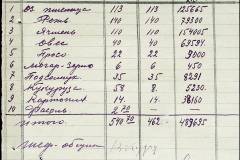 1 Оз. пшеница 113 113 125665
2 Рожь 140 140 79300
3 Ячмень 110 110 154005
4 Овес 40 40 69594
5 Просо 22 22 77000
6 Могар-Зерно 6 6 450
7 Подсолнух 35 35 8291
8 Кукуруза 58 8. 5230.
9 Картофель 14 14 38150
10 Фасоль 2 70
Итого 540 70 462 489635